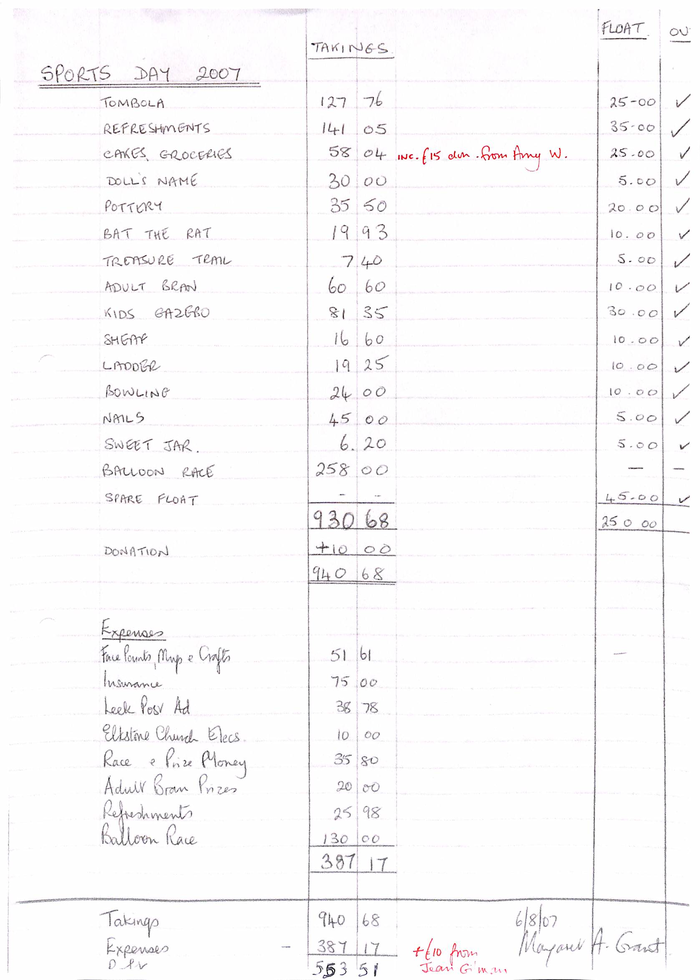 TAKINGS FLOAT OU
SPORTS DAY 2007
TOMBOLA 127 76 25-00 ✓
REFRESHMENTS 141 05 35-00 ✓
CAKES, GROCERIES 58 04 INC. £15 don. from Amy W. 25.00 ✓
DOLL'S NAME 30 00 5.00 ✓
POTTERY 35 50 20.00 ✓
BAT THE RAT 19 93 10.00 ✓
TREASURE TRAIL 7 40 5.00 ✓
ADULT BRAN 60 60 10.00 ✓
KIDS GAZEBO 81 35 30.00 ✓
SHEAF 16 60 10.00 ✓
LADDER 19 25 10.00 ✓
BOWLING 24 00 10.00 ✓
NAILS 45 00 5.00 ✓
SWEET JAR. 6.20 5.00 ✓
BALLOON RACE 258 00 — –
SPARE FLOAT – – 45.00 ✓
930 68 250 00
DONATION +10 00
940 68
Expenses
Face Paints, Mugs & Crafts 51 61 —
Insurance 75 00
Leek Post Ad 38 78
Elkstone Church Elecs. 10 00
Race & Prize Money 35 80
Adult Bran Prizes 20 00
Refreshments 25 98
Balloon Race 130 00
387 17
Takings 940 68 6/8/07
Expenses – 387 17 +£10 from Margaret A. Grant
553 51 Jean